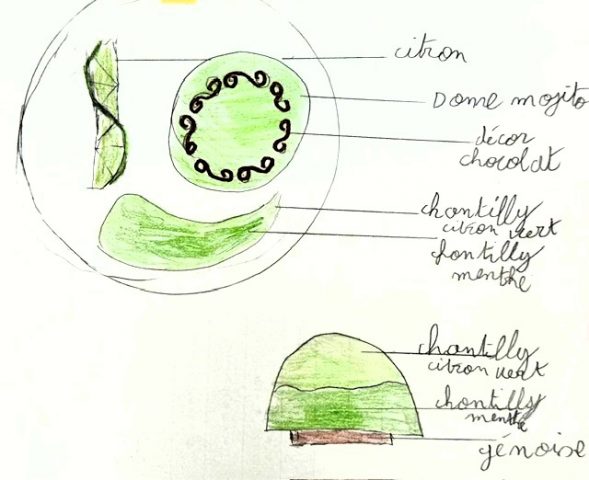 citron
Dome mojito
décor
chocolat
chantilly
citron vert
chantilly
menthe
chantilly
citron vert
chantilly
menthe
génoise